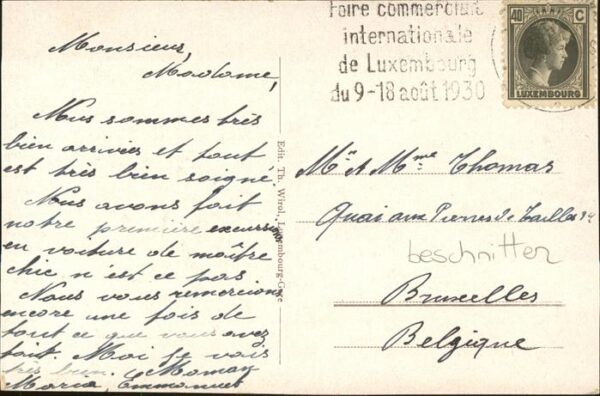 Monsieur,
Madame,
Nous sommes très
bien arrivés et tout
est très bien soigné
Nous avons fait
notre première excursion
en voiture de maître
chic n'est ce pas
Nous vous remercions
encore une fois de
tout ce que vous avez
fait. Moi je vais
très bien. Maman
Maria, Emmanuel
Edit. Th. Wirol, Luxembourg-Gare
Foire commerciale
internationale
de Luxembourg
du 9-18 août 1930
40 C
LUXEMBOURG
Mr & Mme Thomas
Quai aux Pierres de Tailles
beschnitten
Bruxelles
Belgique